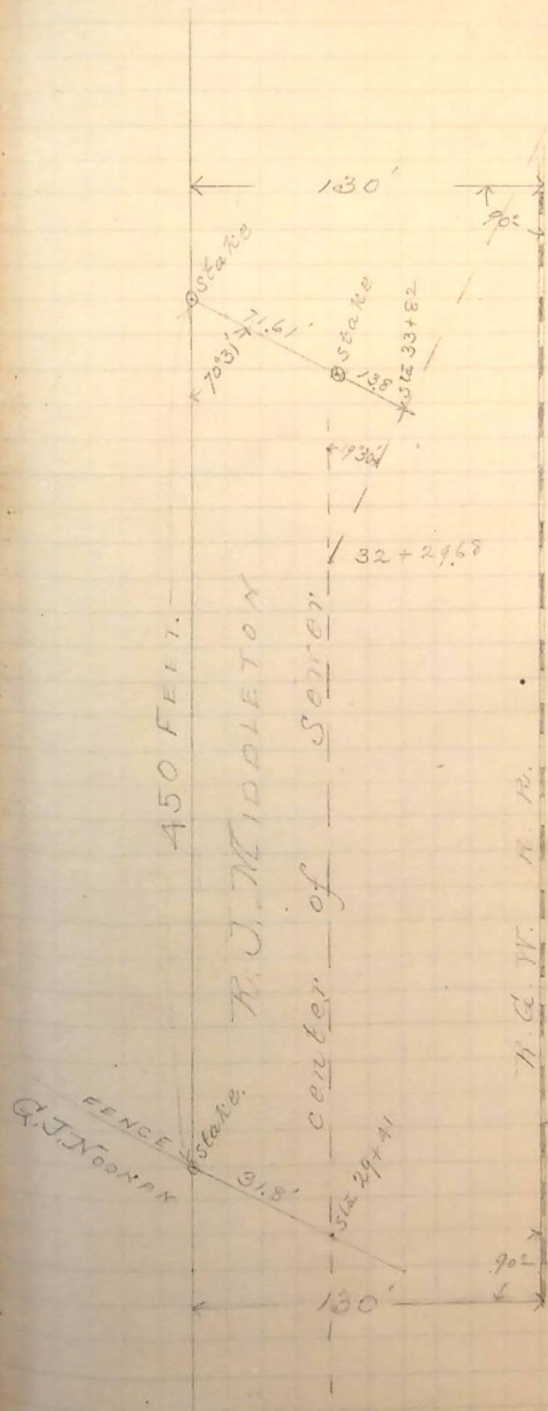 130'
90°
Stake
71.61'
70°31'
Stake
13.8
Sta 33+82
32+29.68
450 FEET.
R. J. MIDDLETON
center of Sewer
R. G. W. R. R.
FENCE
G. J. NOONAN
Stake
31.8'
Sta 29+41
90°
130'